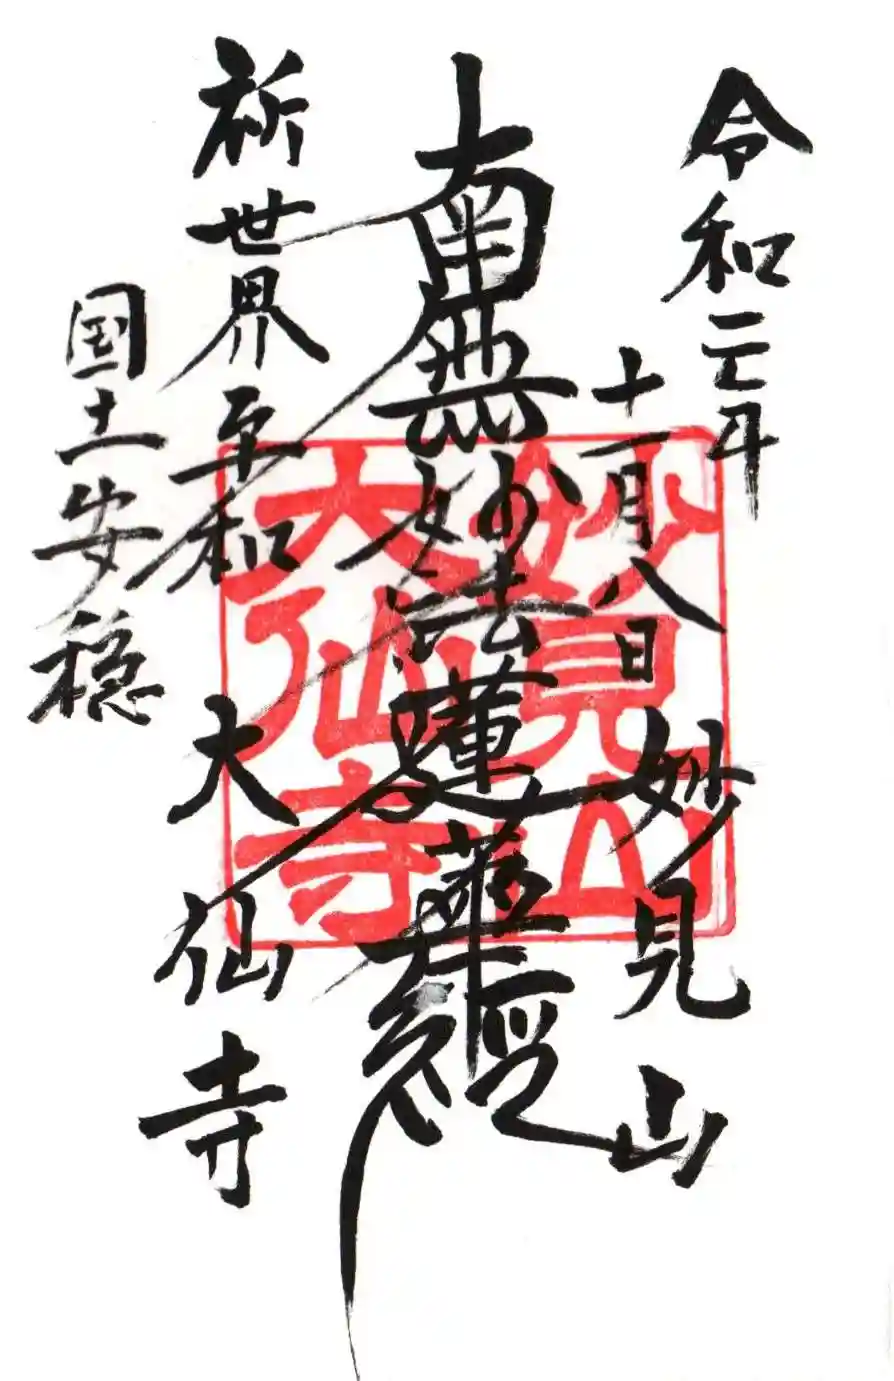 令和元年
十一月八日
妙見山
南無妙法蓮華経
祈世界平和
国土安穏
大仙寺
妙見山
大仙寺